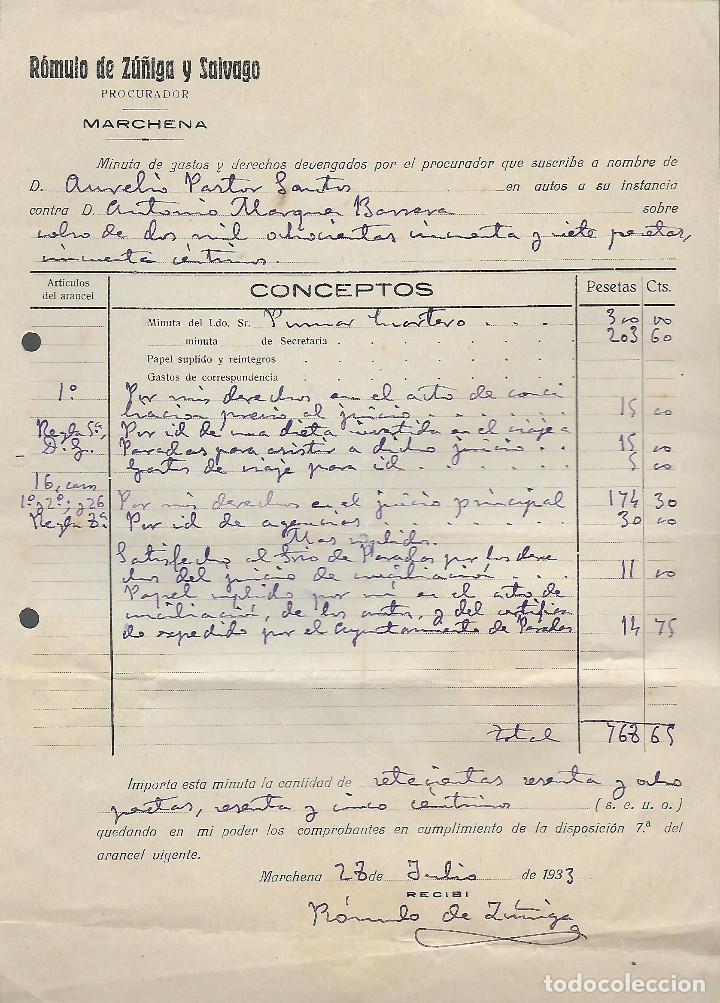 Rómulo de Zúñiga y Salvago
PROCURADOR
MARCHENA
Minuta de gastos y derechos devengados por el procurador que suscribe a nombre de
D. Aurelio Pastor Santos en autos a su instancia
contra D. Antonio Marquez Barrera sobre
cobro de dos mil ochocientas cincuenta y siete pesetas,
cincuenta céntimos.
Artículos del arancel CONCEPTOS Pesetas Cts.
Minuta del Ldo. Sr. 300 00
minuta de Secretaria 203 60
Papel suplido y reintegros
Gastos de correspondencia
1º Por mis derechos en el acto de conci
liacion previo al juicio 15 00
Regla 5ª, Por id de una dieta invertida en el viaje a
D. G. Paradas para asistir a dicho juicio 15 00
Gastos de viaje para id. 5 00
16, caso
1º, 2º; y 26 Por mis derechos en el juicio principal 174 30
Regla Por id de agencias 30 00
Mas suplidos.
Satisfecho al Srio de Paradas por los dere
chos del juicio de conciliación 11 00
Papel suplido por mi en el acto de
conciliación, de los autos, y del certifica
do expedido por el Ayuntamiento de Paradas 14 75
Total 768 65
Importa esta minuta la cantidad de setecientas sesenta y ocho
pesetas, sesenta y cinco céntimos (s. e. u. o.)
quedando en mi poder los comprobantes en cumplimiento de la disposición 7.ª del
arancel vigente.
Marchena 28 de Julio de 1933
RECIBI
Rómulo de Zúñiga
todocoleccion